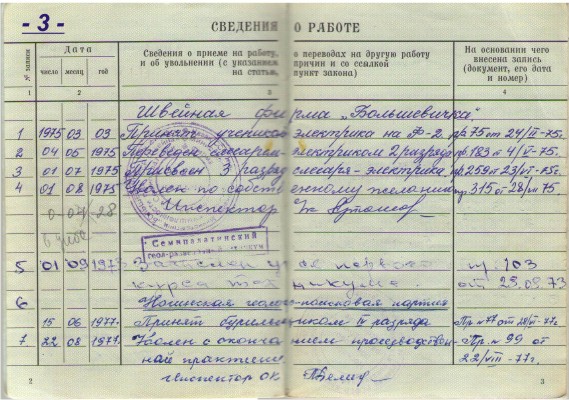 - 3 -
СВЕДЕНИЯ О РАБОТЕ
№ записи
Дата
Сведения о приеме на работу, о переводах на другую работу и об увольнении (с указанием причин и со ссылкой на статью, пункт закона)
На основании чего внесена запись (документ, его дата и номер)
число месяц год
1 2 3 4
Швейная фирма „Большевичка"
1 1975 03 03 Принят учеником электрика на Ф-2. пр 75 от 24/II-75г.
2 04 05 1975 Переведен слесарем-электриком 2 разряда пр 183 от
3 01 07 1975 Присвоен 3 разряд слесаря-электрика пр 259 от 23/VI-75г.
4 01 08 1975 Уволен по собственному желанию пр. 315 от 28/VII 75
Инспектор
Семипалатинский
геол-разведочный техникум
5 01 09 Зачислен первого пр. 103
курса техникума. от
6 поисковая партия
15 06 1977. Принят бурильщиком IV разряда Пр. №77 от
7 22 08 1977. Уволен с окончанием производствен- Пр. № 99 от
ной практики 22/VIII-77г.
инспектор ОК
2 3